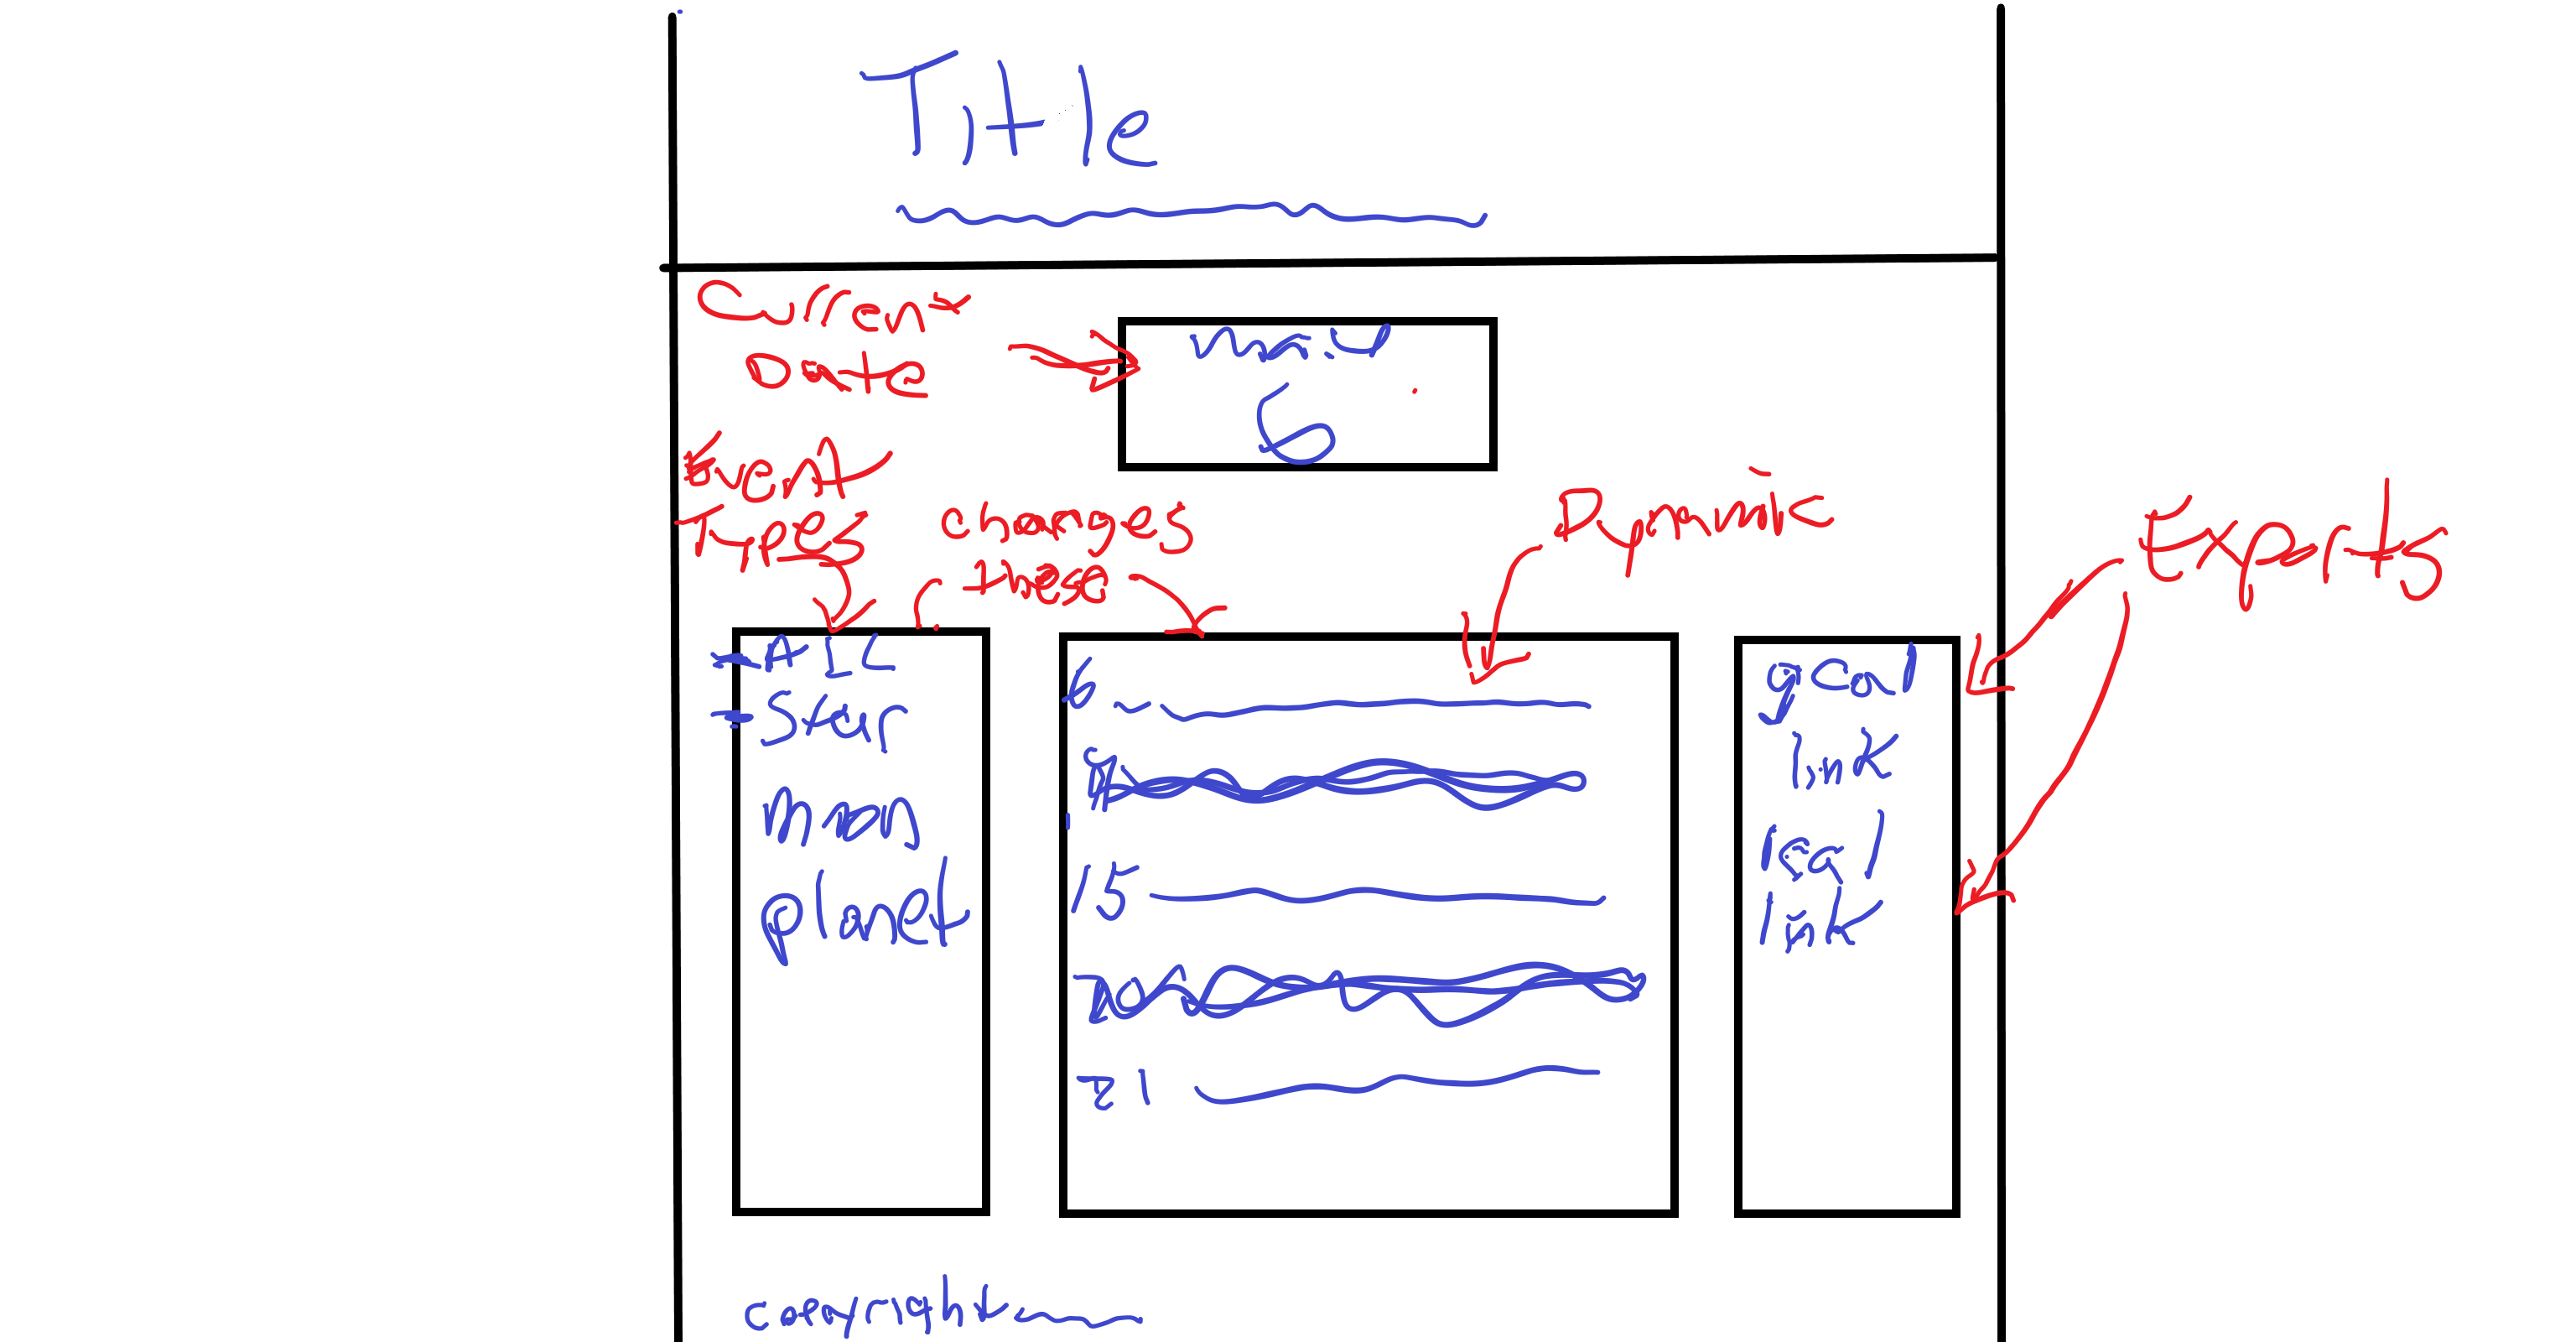 Title
Current
Date
Event
Types
changes
these
Dynamic
Exports
6
- Star
moon
planet
6
15
21
gCal
link
ical
link
copyright